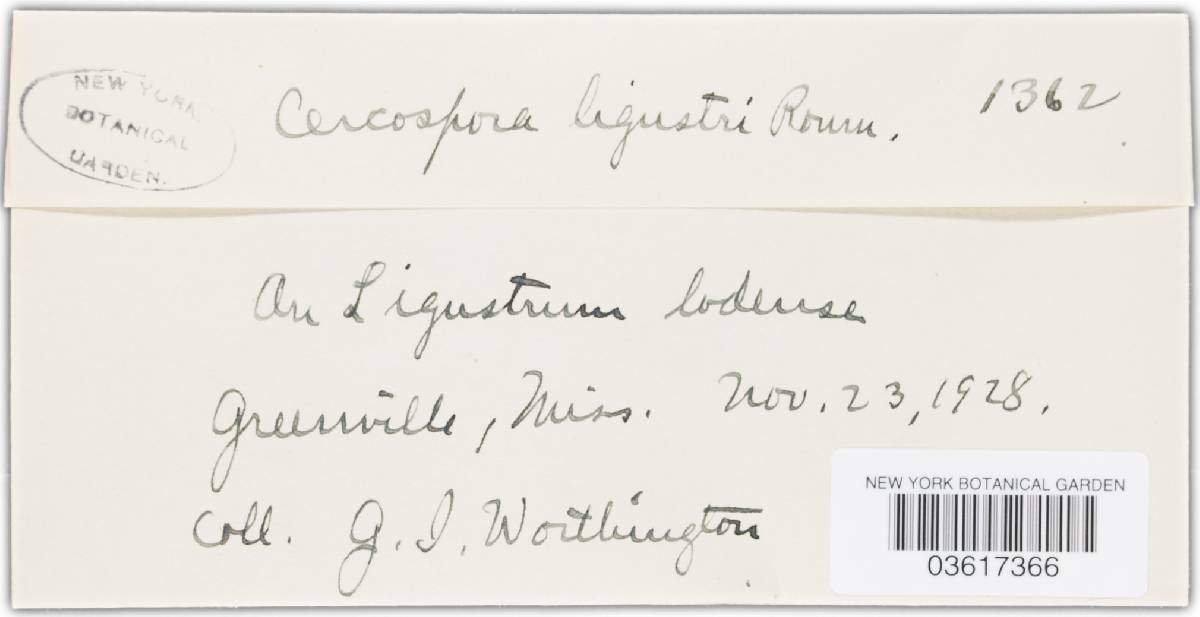 NEW YORK
BOTANICAL
GARDEN.
Cercospora ligustri Roum.
1362
On Ligustrum lodense
Greenville, Miss. Nov. 23, 1928.
Coll. G. I. Worthington
NEW YORK BOTANICAL GARDEN
03617366